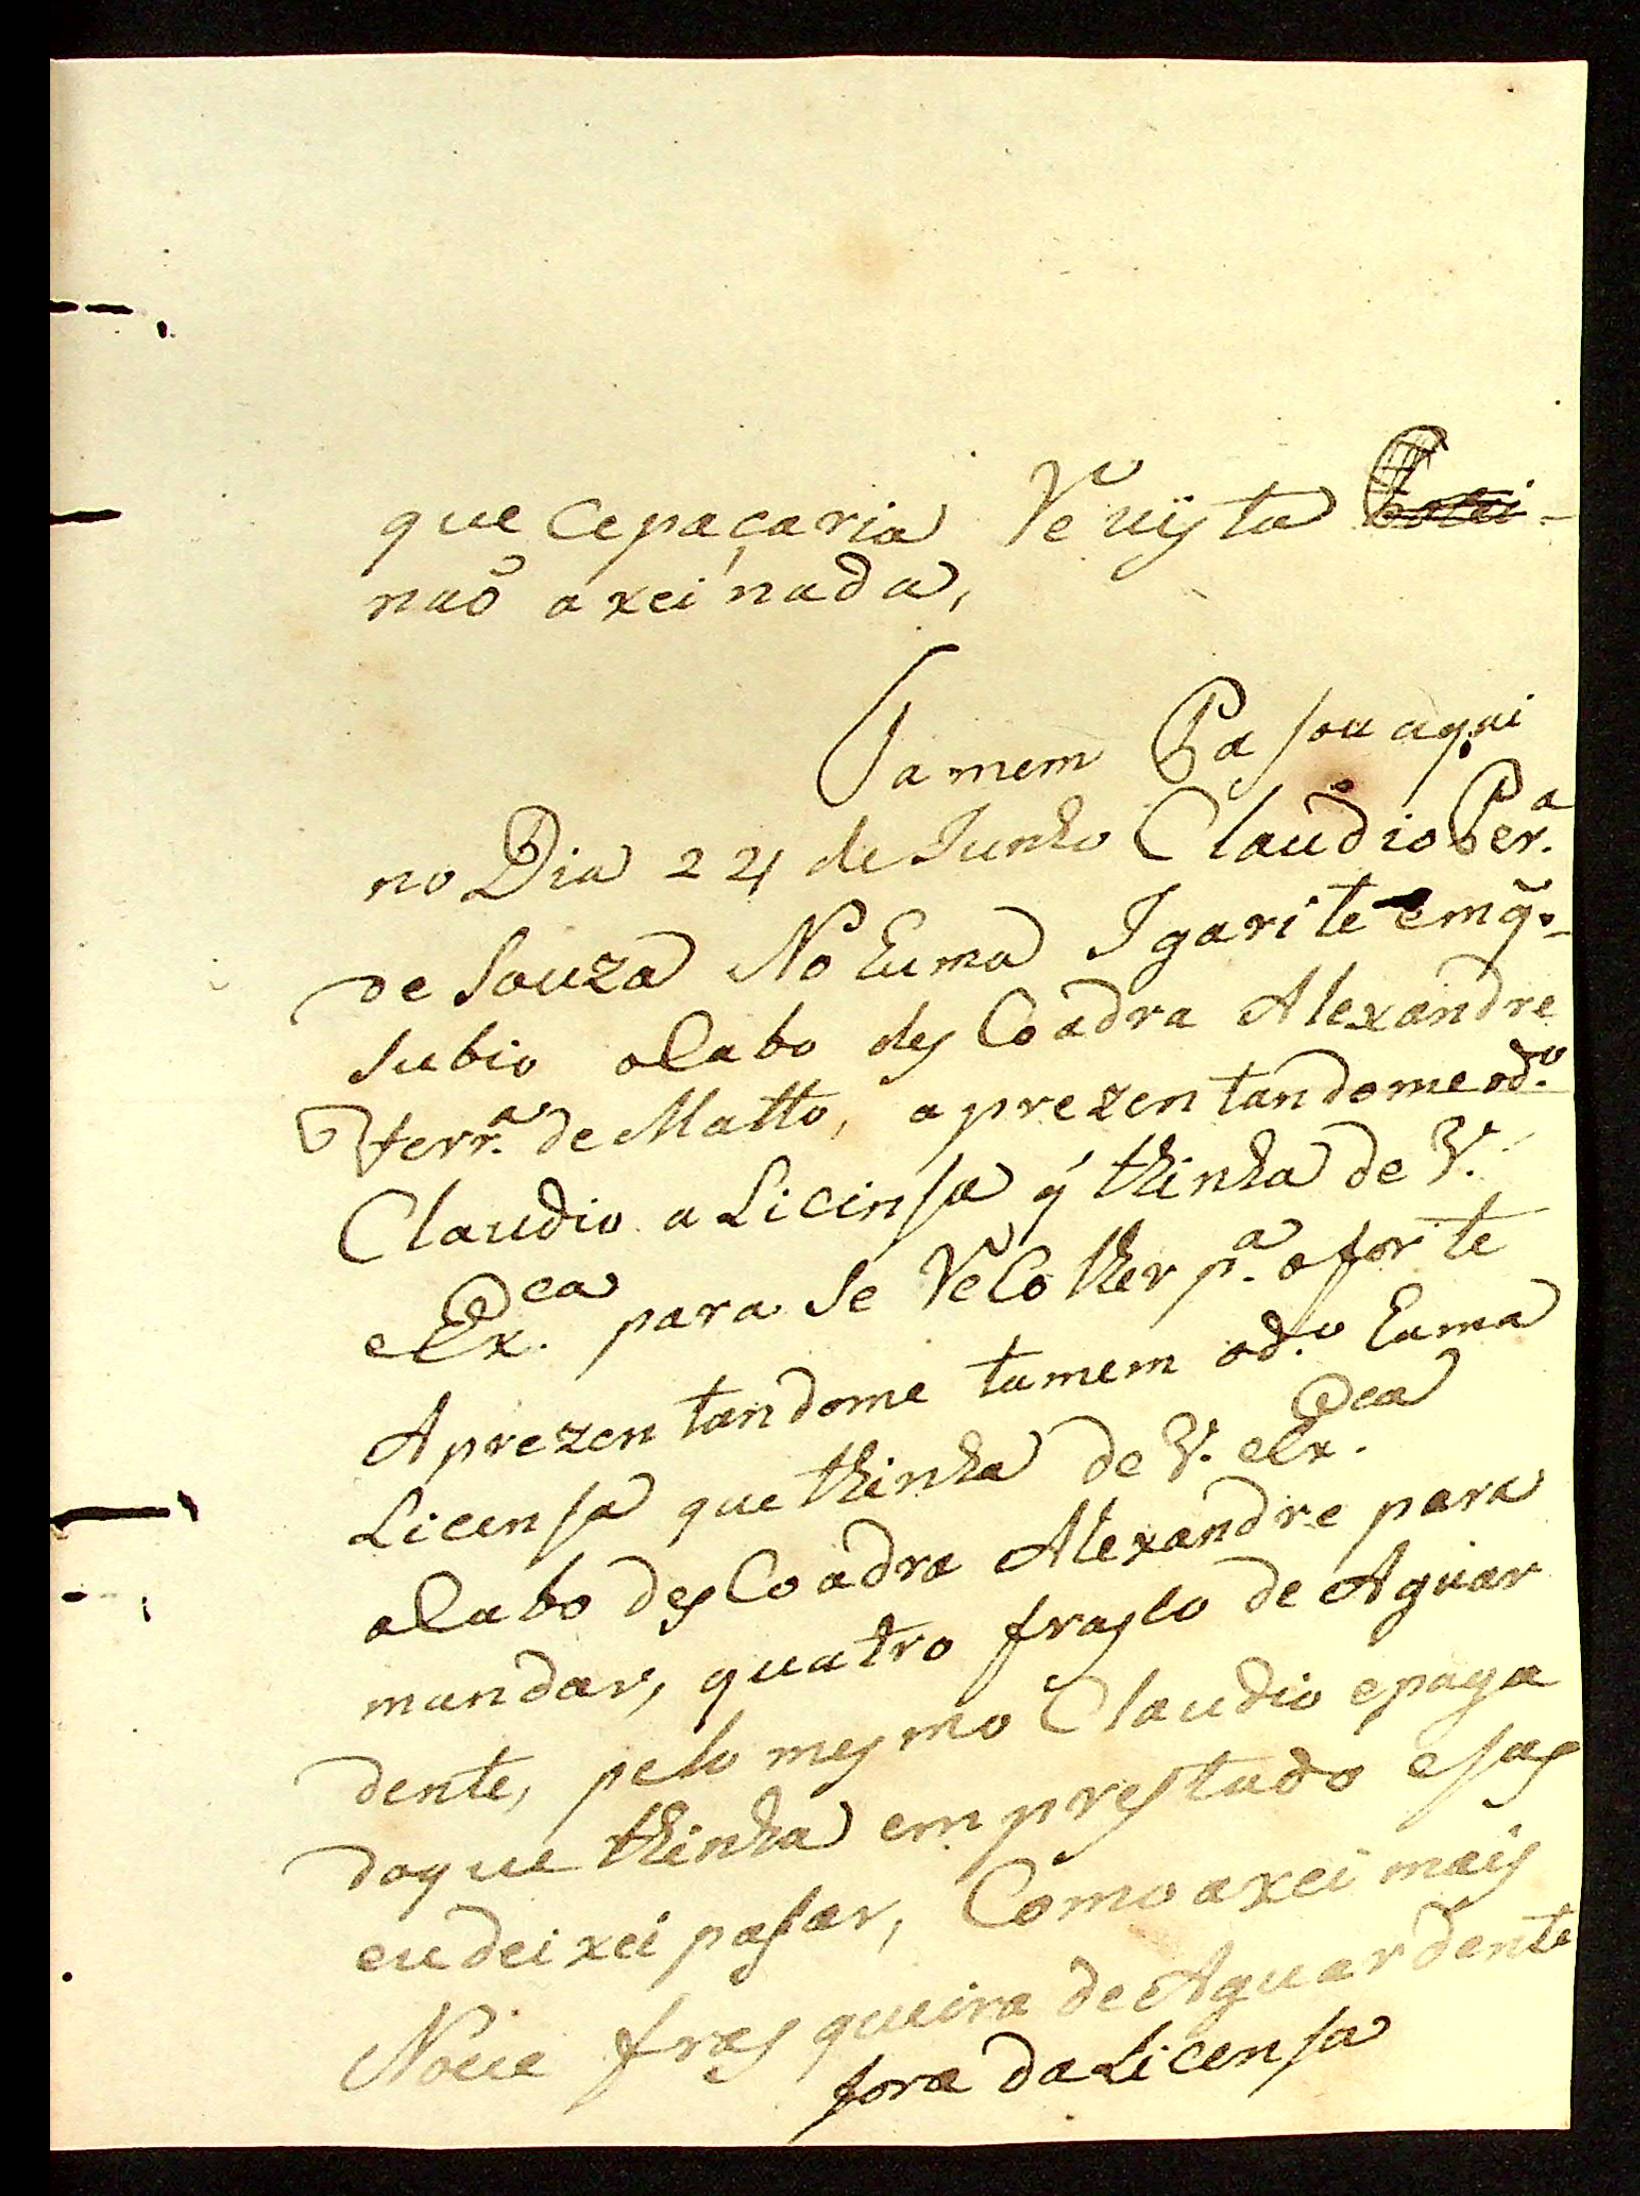 que cepaçaria Reuysta
naõ axei nada,
Tamem Pasou aqui
no Dia 24 de Junho Claudio Per.ª
de Souza No huma Igarite emq̃.
Subio o Cabo des Coadra Alexandre
Ferr.ª de Matto, aprezentandome od.º
Claudio a Licinsa q́ thinha de V.
Ex.cea para se Recolher p.ª o forte
Aprezentandome tamem od.º huma
Licensa que thinha de V. Ex.cea
o Cabo des Coadra Alexandre para
mandar, quatro frasco de Aguar
dente, pelo mesmo Claudio epaga
doque thinha emprestado esas
eu deixei pasar, Como axei mais
Noue frasqueira de Aguardente
fora da Licensa